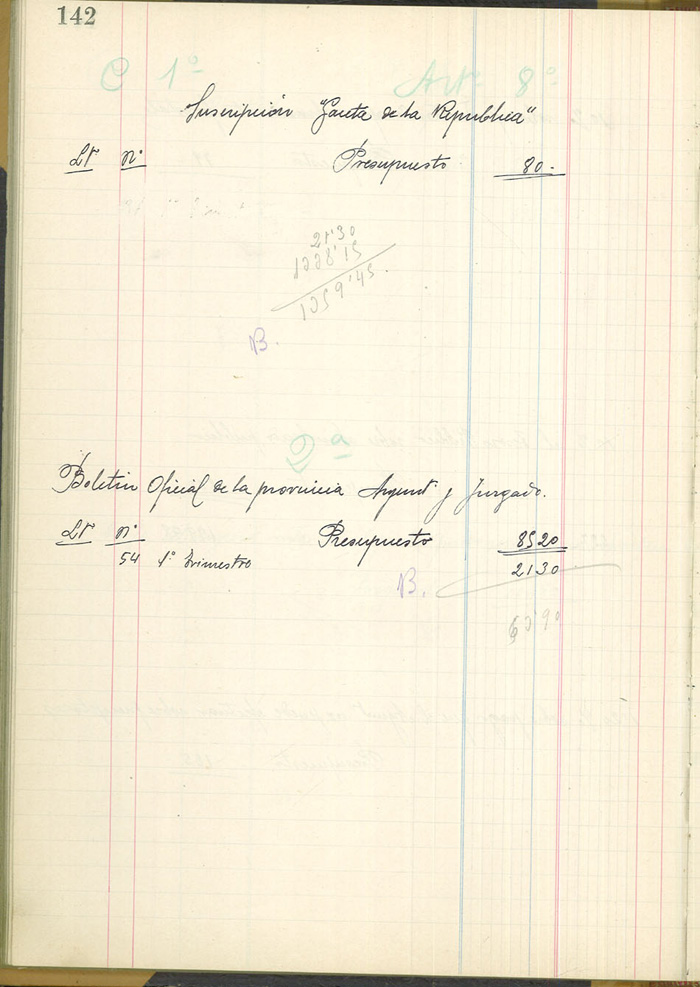 142
C 1º Art. 8º
Suscripción "Gaceta de la Republica"
Lº nº Presupuesto 80.
21'30
1338'15
1359'45.
B.
2ª
Boletin Oficial de la provincia Ayunt y Juzgado.
Lº nº Presupuesto 8520
54 1º Trimestro 2130
B.
63'90